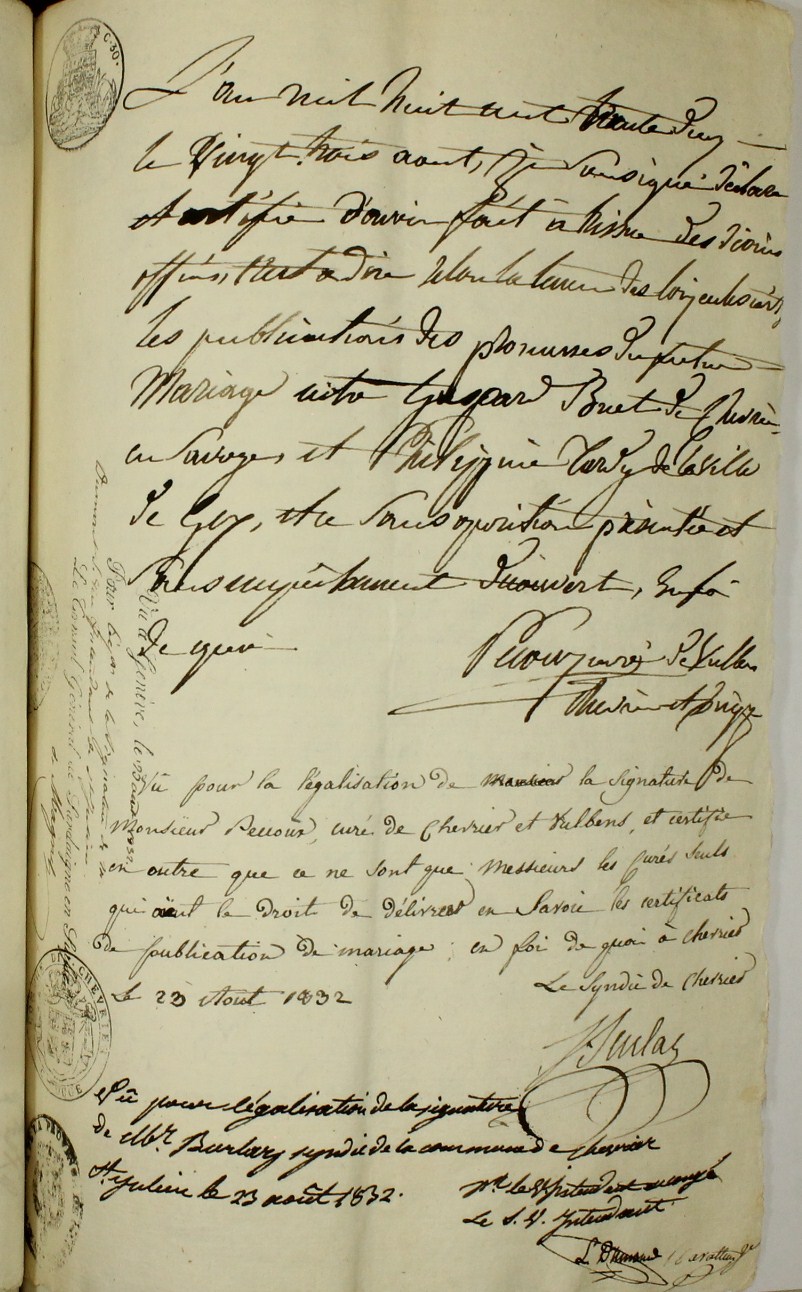 C.30.
L'an mil huit cent trente deux
le vingt trois aout, je soussigné déclare
et certifie d'avoir fait à l'issue des divins
offices, c'est a dire selon la teneur des loix
les publications des promesses du futur
Mariage entre Gaspard Buet de Chevrier
en Savoye, et Philippine Tardy de la Ville
de Gex, et ce sans oposition présentée et
sans empêchement découvert, En foi
de quoi
curé de Vulbens
Chevrier et
Vu pour la légalisation de la signature de
Monsieur Pecour, curé de Chevrier et Vulbens, et certifie
en outre que ce ne sont que Messieurs les Curés seuls
qui aient le droit de délivrer en Savoie les certificats
de publication de mariage, en foi de quoi à Chevrier
Le 23 Aout 1832
Le Syndic de Chevrier
Vû pour légalisation de la signature
de Mr. Burlaz syndic de la commune de Chevrier
St. Julien le 23 août 1832.
Mr. le
Le S. V. Intendant
Vu à Genève, le 23 aout 1832.
Pour légal. de la signature
Le Consul Général de Sardaigne en Suisse
CHEVRIER